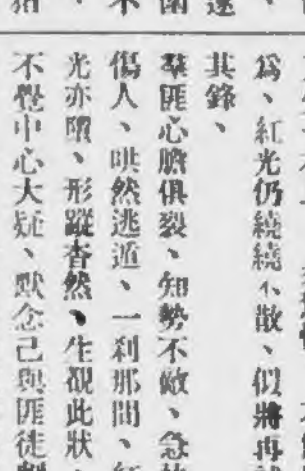 為、紅光仍繞繞不散、似將再
其鋒、
羣匪心膽俱裂、知勢不敵、急
傷人、哄然逃遁、一刹那間、紅
光亦隱、形蹤杳然、生覩此狀、
不覺中心大疑、默念己與匪徒